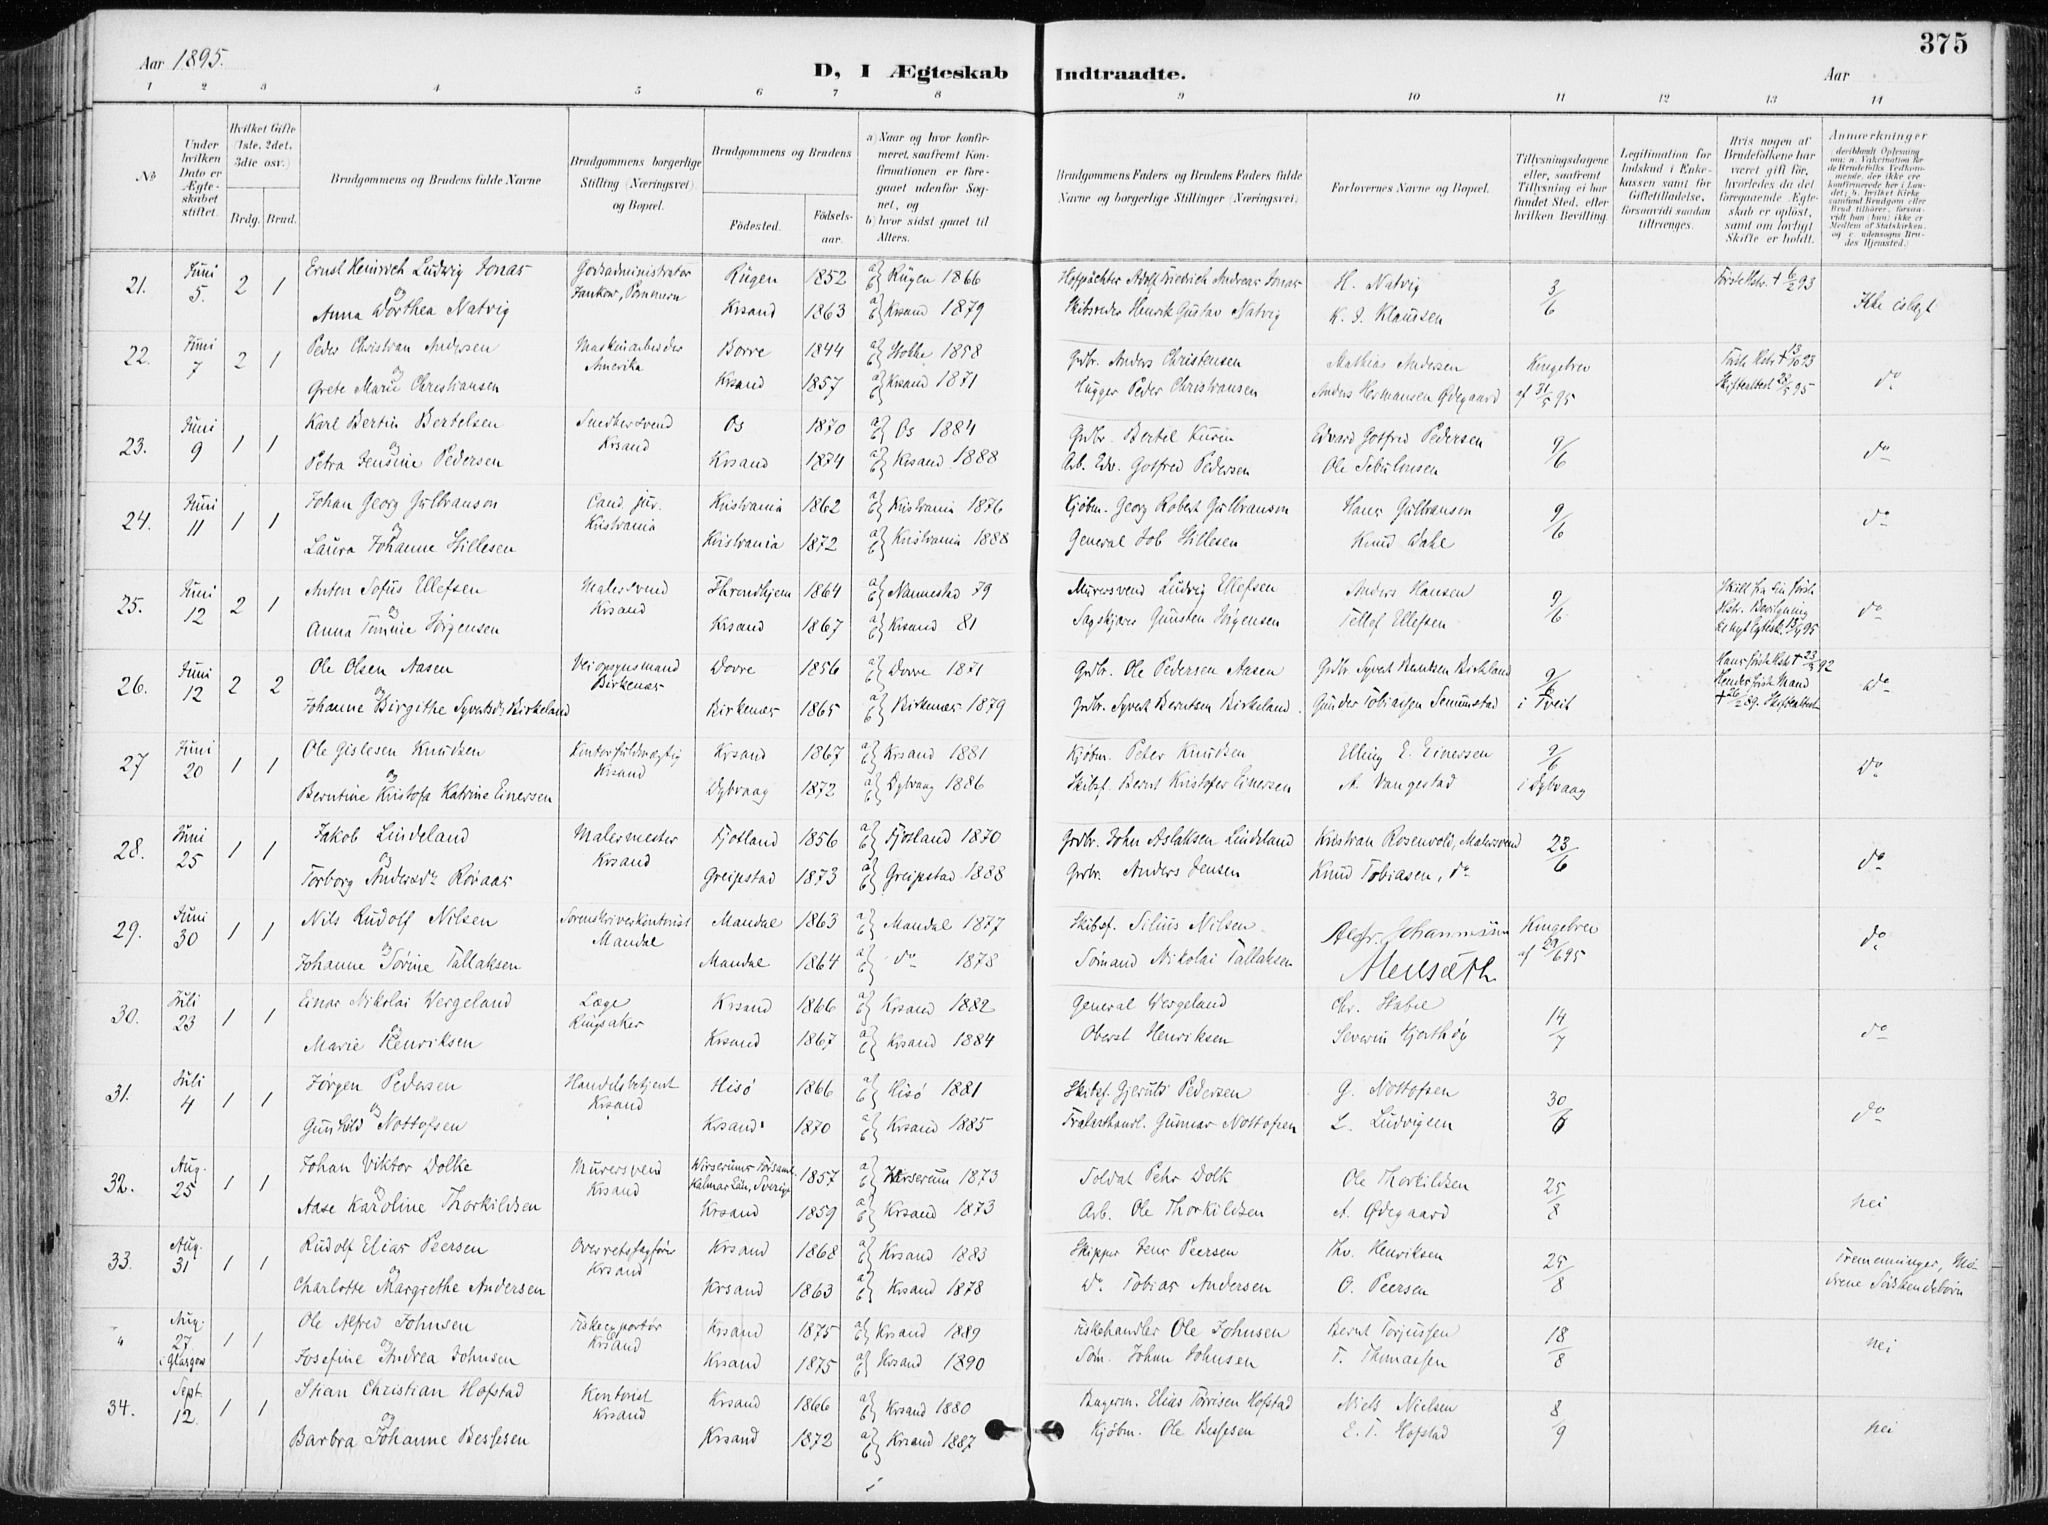 375
Aar 1895.
D, I Ægteskab Indtraadte.
Aar
1 2 3 4 5 6 7 8 9 10 11 12 13 14
No
Under hvilken Dato er Ægteskabet stiftet.
Hvilket Gifte (1ste, 2det, 3die osv.)
Brdg. Brud.
Brudgommens og Brudens fulde Navne
Brudgommens borgerlige Stilling (Næringsvei) og Bopæl.
Brudgommens og Brudens
Fødested.
Fødselsaar.
a) Naar og hvor konfirmeret, saafremt Konfirmationen er foregaaet udenfor Sognet, og
b) hvor sidst gaaet til Alters.
Brudgommens Faders og Brudens Faders fulde Navne og borgerlige Stillinger (Næringsvei)
Forlovernes Navne og Bopæl.
Tillysningsdagene eller, saafremt Tillysning ei har fundet Sted, efter hvilken Bevilling.
Legitimation for Indskud i Enkekassen samt for Giftetilladelse, forsaavidt saadan tiltrænges.
Hvis nogen af Brudefolkene har været gift før, hvorledes da det foregaaende Ægteskab er opløst, samt om lovligt Skifte er holdt.
Anmærkninger (deriblandt Oplysning om: a. Vakcination for de Brudefolks Vedkommende, der ikke ere konfirmerede her i Landet; b. hvilket Kirkesamfund Brudgom eller Brud tilhører, forsaavidt han (hun) ikke er Medlem af Statskirken, og c. udensogns Brudes Hjemsted.)
21. Juni 5. 2 1 Ernst Heinrich Ludwig Jonas Godsadministrator Rügen 1852 a) Rügen 1866 Hofpächter Adolf Friedrich Andreas Jonas H. Natvig 3/6 Første Hstr. † 6/2 93
og Jankow, Pommern
Anna Dorthea Natvig Krsand 1863 Krsand 1879 Skibsreder Henrik Gustav Natvig K. J. Klausen Ikke besl.
22. Juni 7 2 1 Peder Christian Andersen Maskinarbeider Borre 1844 Stokke 1858 Grdbr. Anders Christensen Mathias Andersen Kongebrev
og Amerika
Grete Marie Christiansen Krsand 1857 Krsand 1871 Hugger Peder Christiansen Anders Hermansen Ødegaard af 31/5 95 Skifteattest 28/5 95 do
23. Juni 9 1 1 Karl Bertin Bertelsen Snedkersvend Os 1870 Os 1884 Grdbr. Bertel Kuven Edvard Gotfred Pedersen 9/6
og Krsand
Petra Jensine Pedersen Krsand 1874 Krsand 1888 Arb. Edv. Gotfred Pedersen Ole do
24. Juni 11 1 1 Johan Georg Gulbranson Cand. jur. Kristiania 1862 Kristiania 1876 Kjøbm. Georg Robert Gulbranson Hans Gulbranson 9/6
og Kristiania
Laura Johanne Hillesen Kristiania 1872 Kristiania 1888 General Job Hillesen Knud Dahl do
25. Juni 12 2 1 Anton Sofus Ellefsen Malersvend Throndhjem 1864 Nannestad 79 Murersvend Ludvig Ellefsen Anders Hansen 9/6 Skilt fra sin første
og Krsand Hstr. Bevilgning
Anna Tomine Jørgensen Krsand 1867 Krsand 81 Sagskjærer Gunsten Jørgensen Tellef Ellefsen til nyt Egtesk. 95 do
26. Juni 12 2 2 Ole Olsen Aasen Veiopsynsmand Dovre 1856 Dovre 1871 Grdbr. Ole Pedersen Aasen Grdbr. Syvert Berntsen Birkeland 9/6 Hans første Hstr † 23/3 92
og Birkenæs Hendes første Mand
Johanne Birgithe Syvertsdr. Birkeland Birkenæs 1865 Birkenæs 1879 Grdbr. Syvert Berntsen Birkeland. Gunder Tobiassen i Tveit † 26/2 89. Skifteattest do
27 Juni 20 1 1 Ole Gislesen Knudsen Kontorfuldmægtig Krsand 1867 Krsand 1881 Kjøbm. Peter Knudsen Elling E. Einersen 9/6
og Krsand
Berntine Kristofa Katrine Einersen Dybvaag 1872 Dybvaag 1886 Skibsf. Bernt Kristofer Einersen A. Vangestad i Dybvaag do
28. Juni 25 1 1 Jakob Lindeland Malermester Fjotland 1856 Fjotland 1870 Grdbr. John Aslaksen Lindeland Kristian Rosenvold, Malersvend 23/6
og Krsand
Torborg Andersdr Rosaas Greipstad 1873 Greipstad 1888 Grdbr. Anders Jensen Knud Tobiasen, do do
29. Juni 30 1 1 Nils Rudolf Nilsen Sorenskriverkontorist Mandal 1863 Mandal 1877 Skibsf. Silius Nilsen Kongebrev
og Mandal
Johanne Torine Tallaksen Mandal 1864 do 1878 Sømand Nikolai Tallaksen af 29/6 95 do
30. Juli 23 1 1 Einar Nikolai Vergeland Læge Krsand 1866 Krsand 1882 General Vergeland Chr. Stabel 14/7
og Ringsaker
Marie Henriksen Krsand 1867 Krsand 1884 Oberst Henriksen Severin Hjorthøy do
31. Juli 4 1 1 Jørgen Pedersen Handelsbetjent Hisø 1866 Hisø 1881 Skibsf. Gjeruls Pedersen G. Nottofsen 30/6
og Krsand
Gunhild Nottofsen Krsand 1870 Krsand 1885 Trælasthandl. Gunnar Nottofsen L. Ludvigsen do
32. Aug. 25 1 1 Johan Viktor Dolke Murersvend Wirserums Församl. Kalmar Län, Sverige 1857 Wirserum 1873 Soldat Pehr Dolk Ole Thorkildsen 25/8
og Krsand
Aase Karoline Thorkildsen Krsand 1859 Krsand 1873 Arb. Ole Thorkildsen A. Ødegaard nei
33. Aug. 31 1 1 Rudolf Elias Peersen Overretssagfører Krsand 1868 Krsand 1883 Skipper Jens Peersen Thv. Henriksen 25/8 Tremenninger, Mø-
og Krsand
Charlotte Margrethe Andersen Krsand 1863 Krsand 1878 do Tobias Andersen O. Peersen drene Sødskendebørn
" Aug. 27 i Glasgow 1 1 Ole Alfred Johnsen Fiskeexportør Krsand 1875 Krsand 1889 Fiskehandler Ole Johnsen Bernt Torjussen 18/8
og Krsand
Josefine Andrea Johnsen Krsand 1875 Krsand 1890 Søm. Johan Johnsen T. Thomassen nei
34. Sept. 12. 1 1 Stian Christian Hofstad Kontorist Krsand 1866 Krsand 1880 Bagerm. Elias Tørrisen Hofstad Niels Nielsen 8/9
og Krsand
Barbra Johanne Bessesen Krsand 1872 Krsand 1887 Kjøbm. Ole Bessesen E. T. Hofstad nei